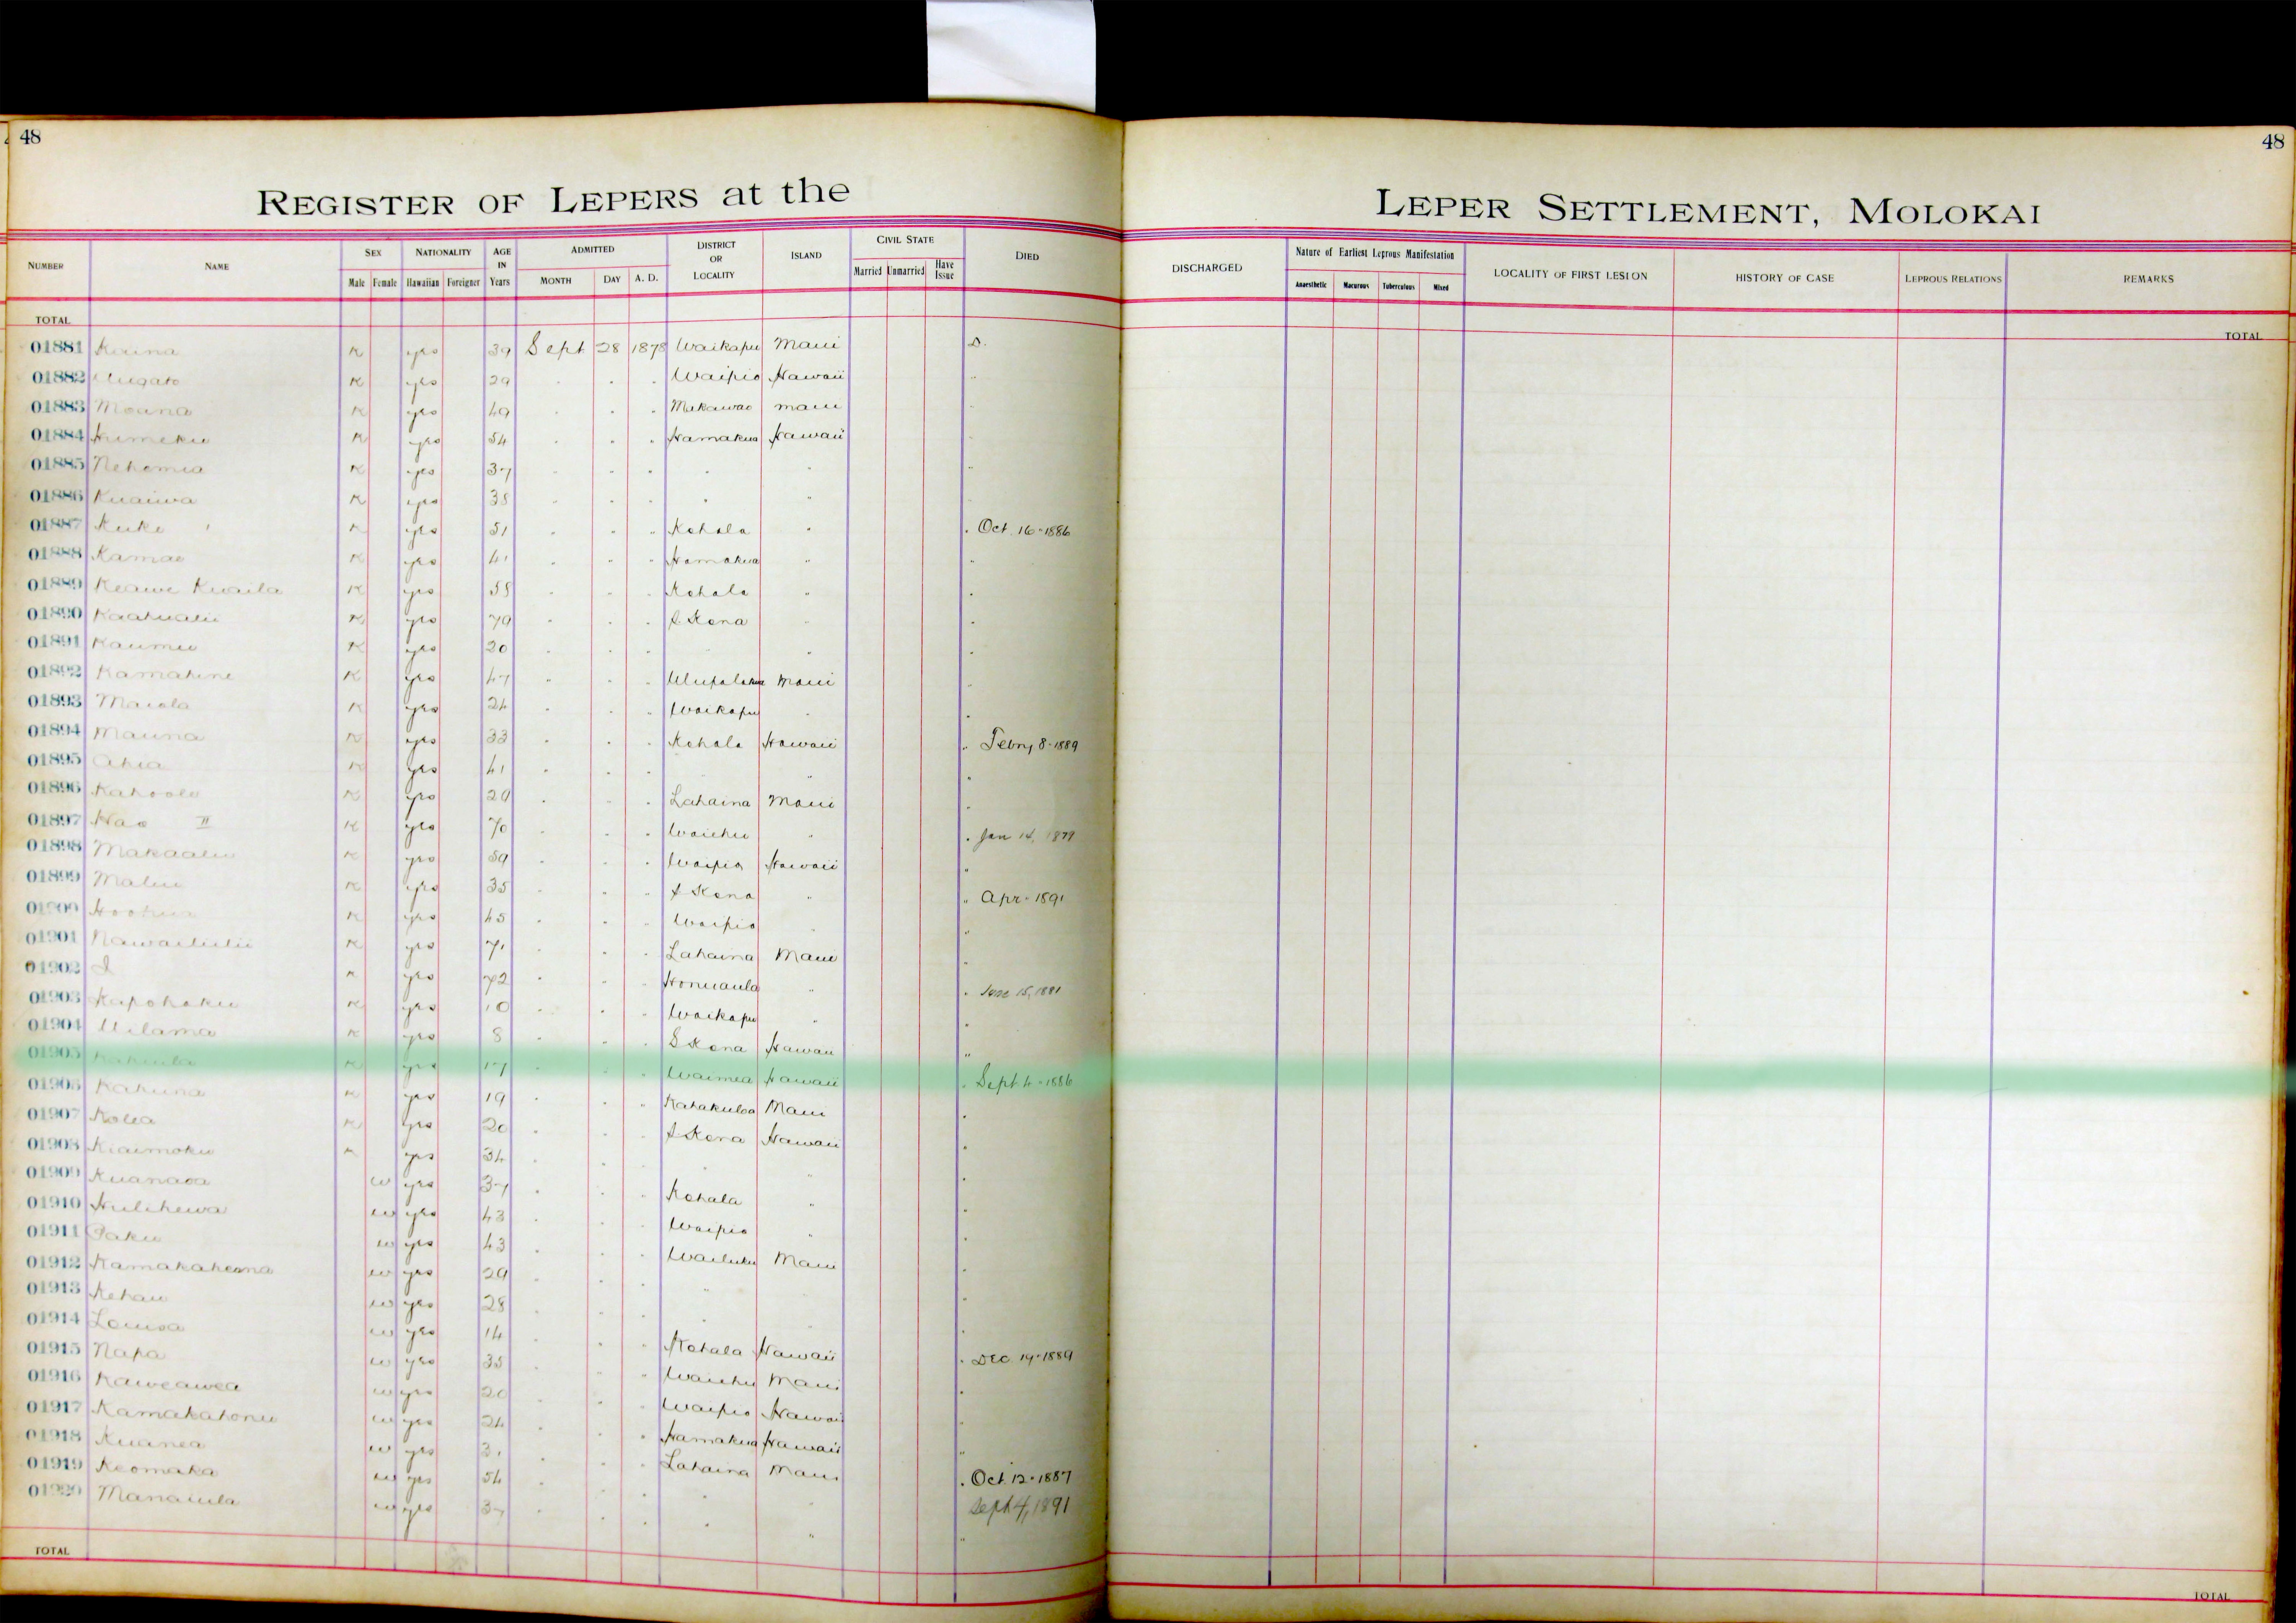 48
48
REGISTER OF LEPERS at the
LEPER SETTLEMENT, MOLOKAI
NUMBER NAME SEX NATIONALITY AGE IN Years ADMITTED DISTRICT OR LOCALITY ISLAND CIVIL STATE DIED
Male Female Hawaiian Foreigner MONTH DAY A. D. Married Unmarried Have Issue
DISCHARGED Nature of Earliest Leprous Manifestation LOCALITY OF FIRST LESION HISTORY OF CASE LEPROUS RELATIONS REMARKS
Anaesthetic Macurous Tuberculous Mixed
TOTAL
TOTAL
01881 K yes 39 Sept 28 1878 Waikapu Maui D.
01882 K yes 29 " " " Waipio Hawaii "
01883 Moana K yes 49 " " " Makawao Maui "
01884 Humeku K yes 54 " " " Hamakua Hawaii "
01885 Nehemia K yes 37 " " " " " "
01886 Kuaiwa K yes 38 " " " " " "
01887 Kuke K yes 51 " " " Kohala " " Oct. 16-1886
01888 Kamao K yes 41 " " " Hamakua " "
01889 Keawe Kuaila K yes 58 " " " Kohala " "
01890 Kaahualii K yes 79 " " " Kona " "
01891 Kaumu K yes 20 " " " " " "
01892 Kamahine K yes 47 " " " Ulupalakua Maui "
01893 Maiola K yes 24 " " " Waikapu " "
01894 Mauna K yes 33 " " " Kohala Hawaii " Febry 8-1889
01895 Ahia K yes 41 " " " " " "
01896 Kahoolo K yes 29 " " " Lahaina Maui "
01897 Hao II K yes 70 " " " Waiehu " " Jan 14, 1879
01898 Makaalu K yes 59 " " " Waipio Hawaii "
01899 Malu K yes 35 " " " Kona " " Apr. 1891
01900 Hoohua K yes 45 " " " Waipio " "
01901 Nawailiilii K yes 71 " " " Lahaina Maui "
01902 I K yes 72 " " " Honuaula " " June 15, 1881
01903 Kapohaku K yes 10 " " " Waikapu " "
01904 Uilama K yes 8 " " " S Kona Hawaii "
01905 K yes 17 " " " Waimea Hawaii " Sept 4-1886
01906 Kahuna K yes 19 " " " Kahakuloa Maui "
01907 Kolea K yes 20 " " " Kona Hawaii "
01908 Kiaimoku K yes 34 " " " " " "
01909 Kuanaoa w yes 37 " " " Kohala " "
01910 Hulihewa w yes 43 " " " Waipio " "
01911 Paku w yes 43 " " " Wailuku Maui "
01912 Kamakaheana w yes 29 " " " " "
01913 Kehau w yes 28 " " " " "
01914 Louisa w yes 14 " " " Kohala Hawaii " Dec. 19-1889
01915 Napa w yes 35 " " " Waiehu Maui "
01916 Kaweawea w yes 20 " " " Waipio Hawaii "
01917 Kamakahonu w yes 24 " " " Hamakua Hawaii "
01918 Kuanea w yes 31 " " " Lahaina Maui " Oct 12-1887
01919 Keomaka w yes 54 " " " " " Sept 4, 1891
01920 Manaiula w yes 37 " " " " " "
TOTAL
TOTAL